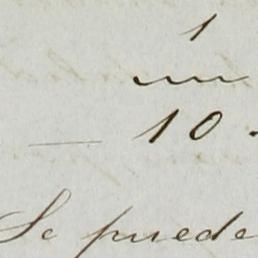 1
10.
Se puede